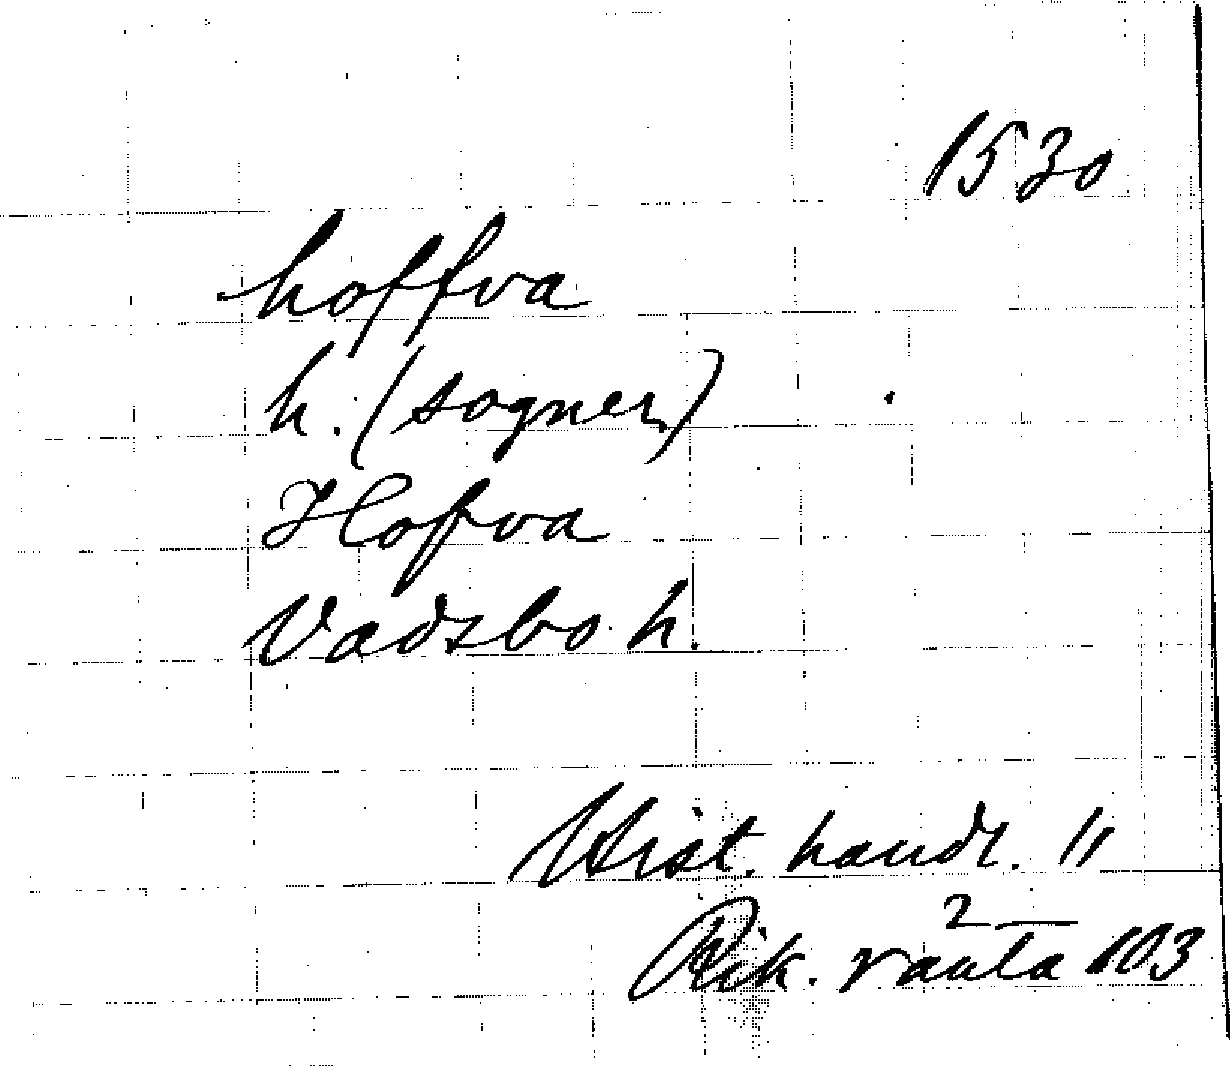 1530
hoffva
h. (sogner)
Hofva
Vadsbo h.
Hist. handl. 11
2
Rik. ranta 103